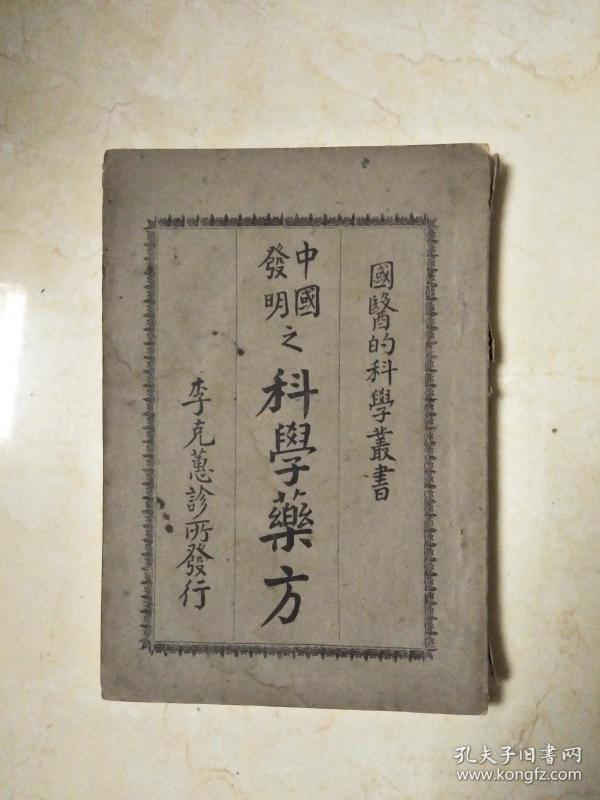 國醫的科學叢書
中國
發明
之科學藥方
李克蕙診所發行
孔夫子旧书网
www.kongfz.com